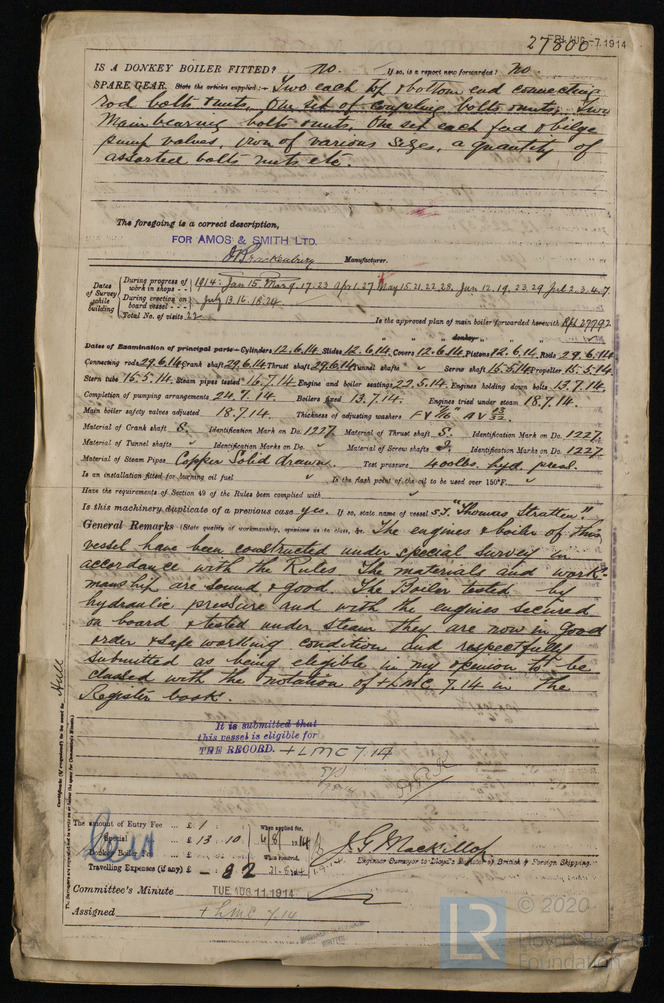 27800
FRI. AUG -7 1914
IS A DONKEY BOILER FITTED? no. If so, is a report now forwarded? no.
SPARE GEAR. State the articles supplied:— Two each top & bottom end connecting
rod bolts & nuts, One set of coupling bolts & nuts, Two
Main bearing bolts & nuts, One set each feed & bilge
pump valves, iron of various sizes, a quantity of
assorted bolts nuts etc.
The foregoing is a correct description,
FOR AMOS & SMITH LTD.
Manufacturer.
Dates of Survey while building
During progress of work in shops - - 1914: Jan 15. Mar 9. 17. 23 Apl. 27 May 15. 21. 22. 28. Jun 12. 19. 23. 29 Jul 2. 3. 4. 7.
During erection on board vessel - - - July 13. 16. 18. 24
Total No. of visits 22
Is the approved plan of main boiler forwarded herewith Rpt 27792
" " " donkey " "
Dates of Examination of principal parts—Cylinders 12.6.14 Slides 12.6.14 Covers 12.6.14 Pistons 12.6.14 Rods 29.6.14
Connecting rods 29.6.14 Crank shaft 29.6.14 Thrust shaft 29.6.14 Tunnel shafts " Screw shaft 15.5.14 Propeller 15.5.14
Stern tube 15.5.14. Steam pipes tested 16.7.14 Engine and boiler seatings 22.5.14. Engines holding down bolts 13.7.14.
Completion of pumping arrangements 24.7.14. Boilers fixed 13.7.14. Engines tried under steam 18.7.14.
Main boiler safety valves adjusted 18.7.14. Thickness of adjusting washers
Material of Crank shaft S. Identification Mark on Do. 1227 Material of Thrust shaft S. Identification Mark on Do. 1227.
Material of Tunnel shafts " Identification Marks on Do. " Material of Screw shafts Identification Marks on Do. 1227.
Material of Steam Pipes Copper Solid drawn. Test pressure 400lbs. hyd. press.
Is an installation fitted for burning oil fuel " Is the flash point of the oil to be used over 150°F. "
Have the requirements of Section 49 of the Rules been complied with "
Is this machinery duplicate of a previous case yes. If so, state name of vessel S.T. "Thomas Stratten".
General Remarks (State quality of workmanship, opinions as to class, &c. The engines & boiler of this
vessel have been constructed under special survey in
accordance with the Rules. The materials and work-
manship are sound & good. The Boiler tested by
hydraulic pressure and with the engines secured
on board & tested under steam they are now in good
order & safe working condition and respectfully
submitted as being eligible in my opinion to be
classed with the notation of + LMC 7.14 in the
Register book.
It is submitted that
this vessel is eligible for
THE RECORD. + LMC 7.14
Hull
Certificate (if required) to be sent to
The amount of Entry Fee .. £ 1
Special .. £ 13. 10
Donkey Boiler Fee .. £
Travelling Expenses (if any) £
When applied for, 6/8/1914
When received,
J G Mackillop
Engineer Surveyor to Lloyd's Register of British & Foreign Shipping.
Committee's Minute TUE AUG 11 1914
Assigned + LMC 7/14
LR
© 2020
Lloyd's Register
Foundation